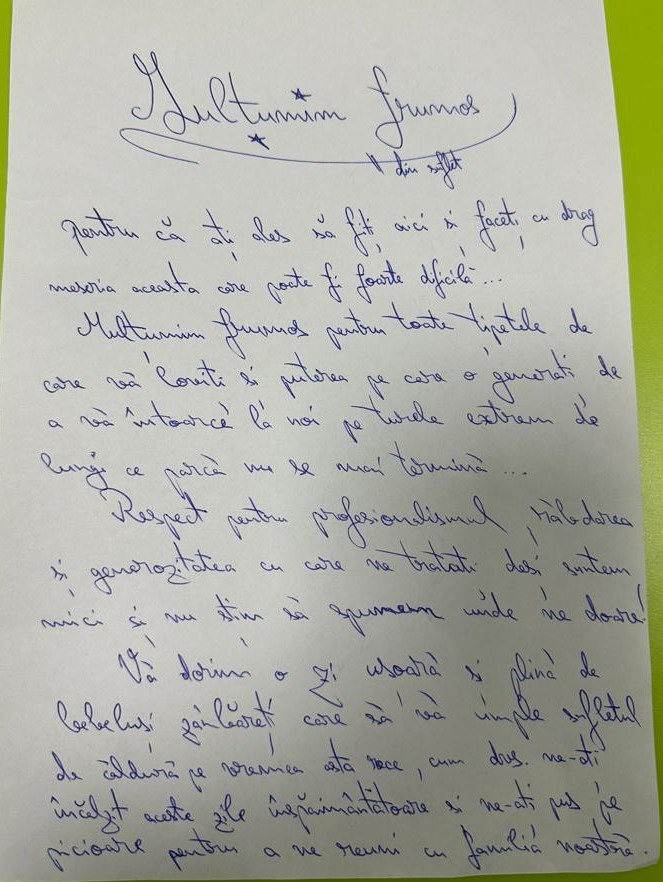 Multumim frumos
din suflet
pentru că ați ales să fiți aici și faceți cu drag
meseria aceasta care poate fi foarte dificilă...
Mulțumim frumos pentru toate țipetele de
care vă loviți și puterea pe care o generați de
a vă întoarce la noi pe turele extrem de
lungi ce parcă nu se mai termină...
Respect pentru profesionalismul, răbdarea
și generozitatea cu care ne tratați deși suntem
mici și nu știm să spunem unde ne doare!
Vă dorim o zi ușoară și plină de
bebeluși zâmbăreți care să vă umple sufletul
de căldură pe vremea asta rece, cum dvs. ne-ați
încălzit aceste zile înspăimântătoare și ne-ați pus pe
picioare pentru a ne reuni cu familia noastră.